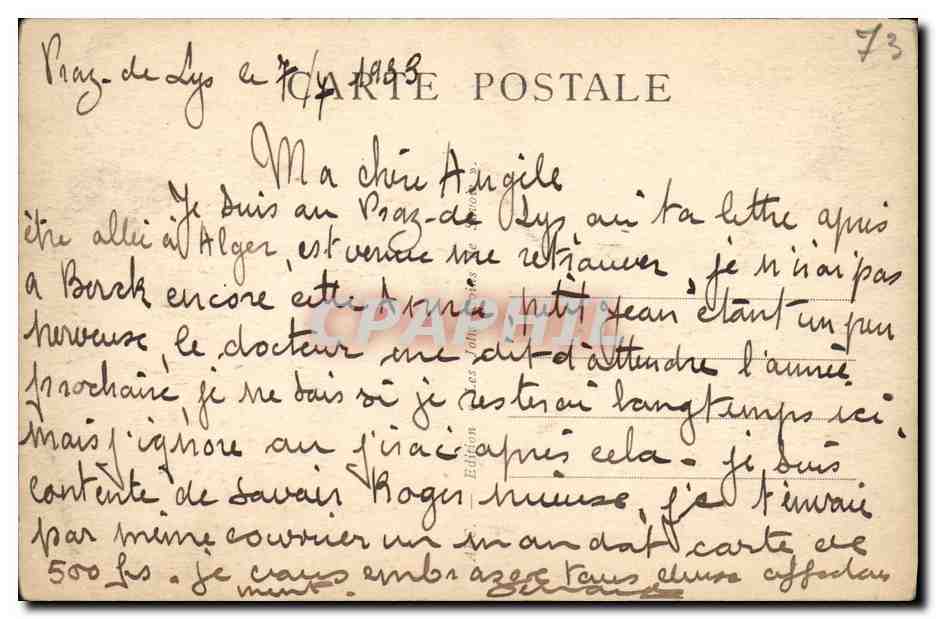 73
Praz-de Lys le 7/7 1933
CARTE POSTALE
Ma chère Angile
Je suis au Praz-de Lys, ou ta lettre après
être allée à Alger, est venue me retrouver, je n'irai pas
a Berck encore cette Année, petit Jean étant un peu
nerveuse, le docteur me dit d'attendre l'année
prochaine, je ne sais si je resterai longtemps ici,
mais j'ignore ou j'irai après cela - je suis
contente de savoir Roger mieuse, je t'envoie
par même courrier un mandat carte de
500 frs. je vous embrasse tous deuse affectueu
ment.
CPAPHIL
Edition